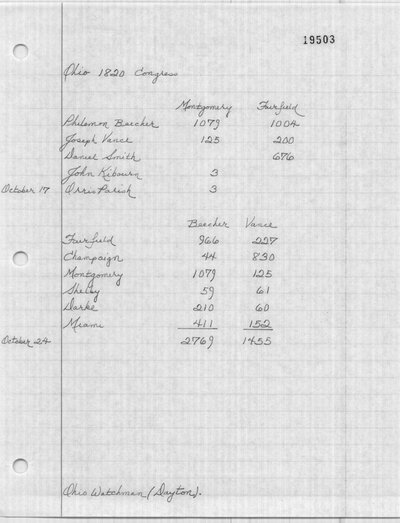 19503
Ohio 1820 Congress
Montgomery Fairfield
Philemon Beecher 1079 1004
Joseph Vance 125 200
Daniel Smith 676
John Kibourn 3
October 17 Orris Parish 3
Beecher Vance
Fairfield 966 227
Champaign 44 830
Montgomery 1079 125
Shelby 59 61
Darke 210 60
Miami 411 152
October 24 2769 1455
Ohio Watchman (Dayton).